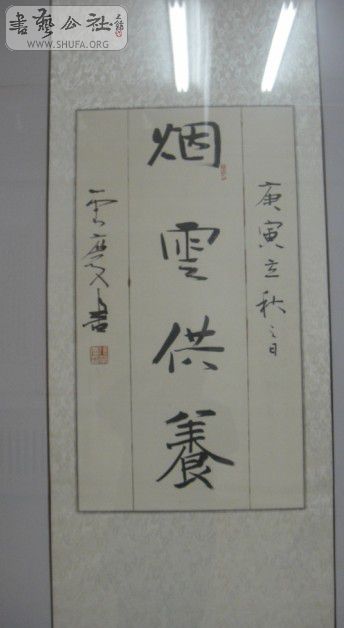 書藝公社
WWW.SHUFA.ORG
庚寅立秋之日
烟雲供養
雲慶書